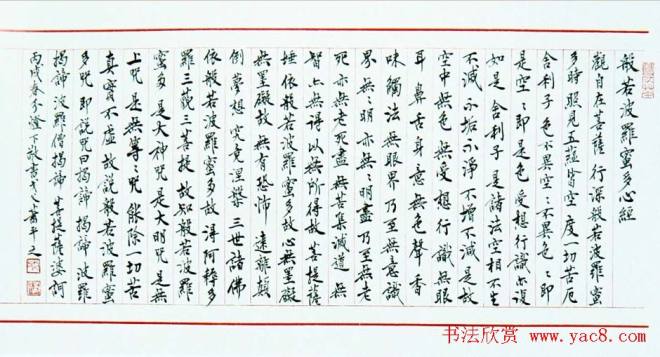 般若波羅蜜多心經
觀自在菩薩行深般若波羅蜜
多時照見五蘊皆空度一切苦厄
舍利子色不異空〻不異色〻即
是空〻即是色受想行識亦復
如是舍利子是諸法空相不生
不滅不垢不淨不增不減是故
空中無色無受想行識無眼
耳鼻舌身意無色聲香
味觸法無眼界乃至無意識
界無〻明亦無〻明盡乃至無老
死亦無老死盡無苦集滅道無
智亦無得以無所得故菩提薩
埵依般若波羅蜜多故心無罣礙
無罣礙故無有恐怖遠離顛
倒夢想究竟涅槃三世諸佛
依般若波羅蜜多故得阿耨多
羅三藐三菩提故知般若波羅
蜜多是大神咒是大明咒是無
上咒是無等〻咒能除一切苦
真實不虛故說般若波羅蜜
多咒即說咒曰揭諦揭諦波羅
揭諦波羅僧揭諦菩提薩婆訶
丙戌春分燈下敬書
书法欣赏 www.yac8.com